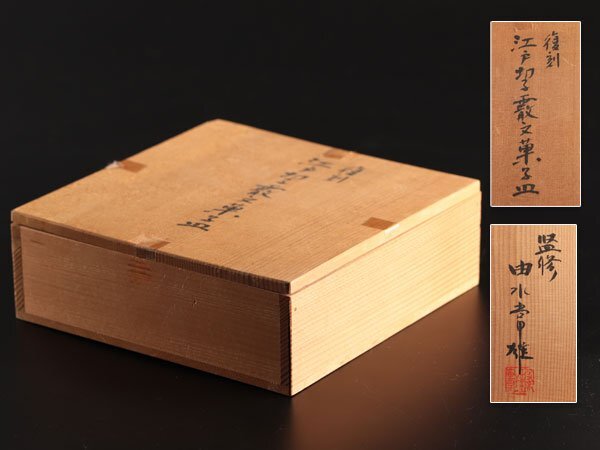 復刻
江戸切子霰文菓子皿
監修
由水常雄